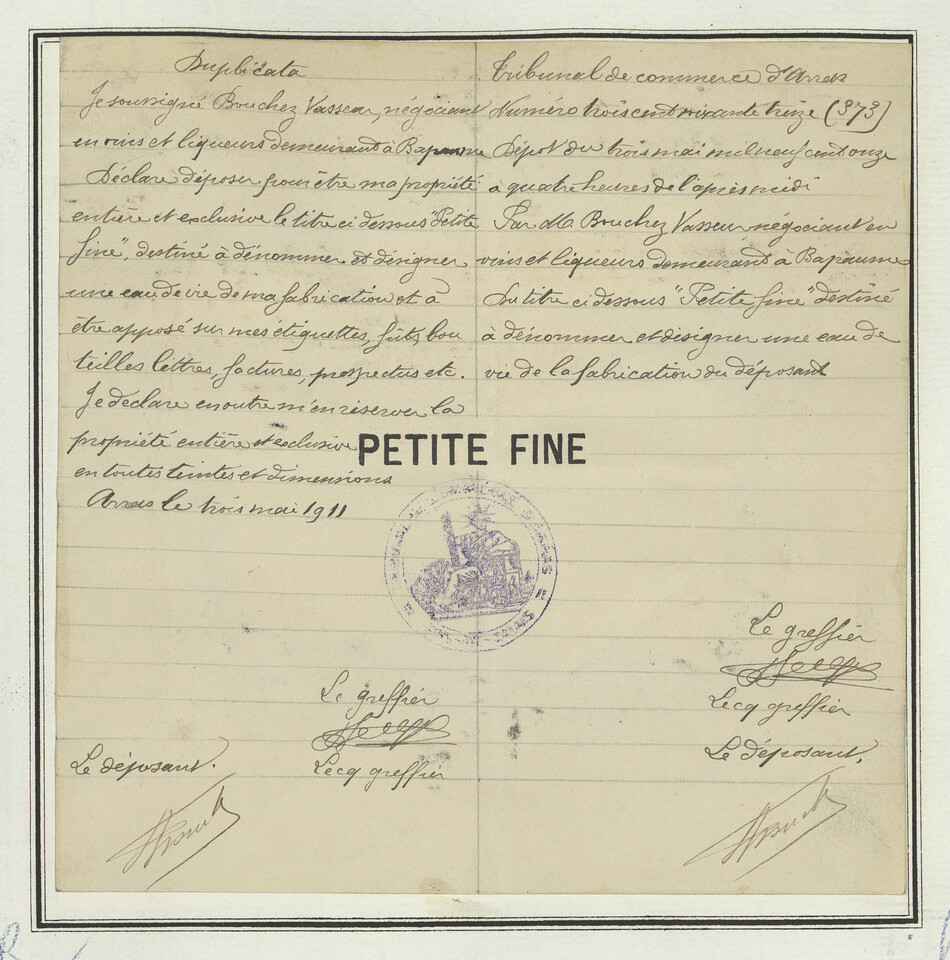 Duplicata
Je soussigné Bouchez Vasseur, négociant
en vins et liqueurs demeurant à Bapaume
Déclare déposer pour être ma propriété
entière et exclusive le titre ci dessous "Petite
fine", destiné à dénommer et désigner
une eau de vie de ma fabrication et à
être apposé sur mes étiquettes, fûts, bou
teilles lettres, factures, prospectus etc.
Je déclare en outre m'en réserver la
propriété entière et exclusive
en toutes teintes et dimensions
Arras le trois mai 1911
Tribunal de commerce d'Arras
Numéro trois cent soixante treize (373)
Dépôt du trois mai mil neuf cent onze
à quatre heures de l'après midi
Par M. Bouchez Vasseur négociant en
vins et liqueurs demeurant à Bapaume
Du titre ci dessous "Petite fine" destiné
à dénommer et désigner une eau de
vie de la fabrication du déposant
PETITE FINE
Le greffier
Lecq greffier
Le déposant.
Le greffier
Lecq greffier
Le déposant.